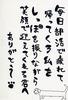 今日部活で疲れて
帰ってくる私を
しっぽを振りながら
笑顔で迎えてくる君
ありがとう